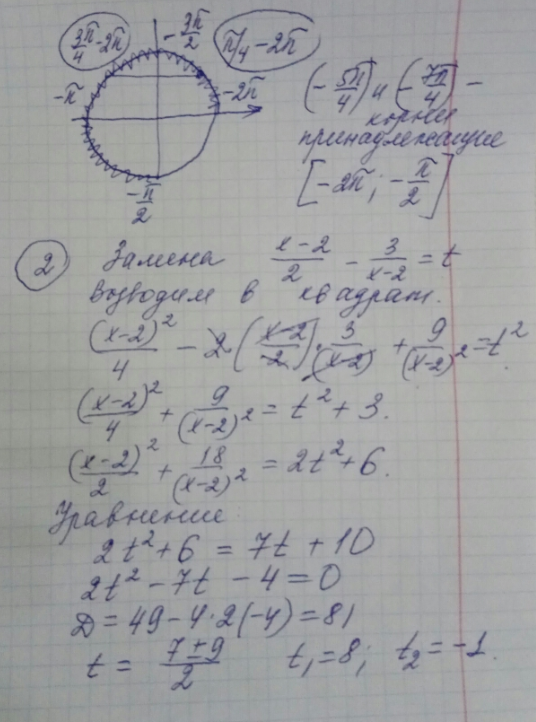 3π/4 - 2π
-3π/2
π/4 - 2π
-π
-2π
-π/2
(-5π/4) и (-7π/4) -
корни
принадлежащие
[-2π; -π/2]
2 Замена (x-2)/2 - 3/(x-2) = t
возводим в квадрат.
(x-2)²/4 - 2((x-2)/2)·3/(x-2) + 9/(x-2)² = t²
(x-2)²/4 + 9/(x-2)² = t² + 3.
(x-2)²/2 + 18/(x-2)² = 2t² + 6.
Уравнение
2t² + 6 = 7t + 10
2t² - 7t - 4 = 0
D = 49 - 4·2(-4) = 81
t = (7±9)/2 t₁ = 8; t₂ = -1.